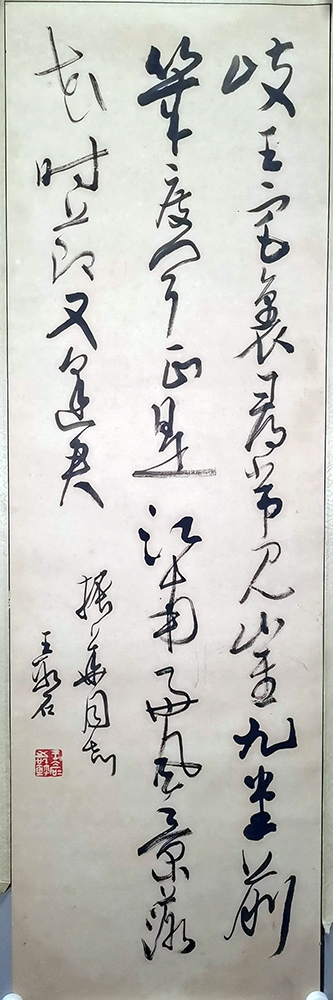 岐王宅裏尋常見崔九堂前
幾度聞正是江南好風景落
花时節又逢君
振華同志
王